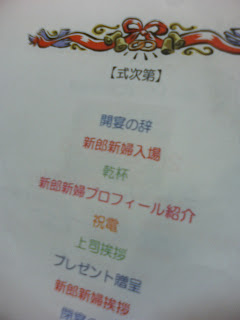 【式次第】
開宴の辞
新郎新婦入場
乾杯
新郎新婦プロフィール紹介
祝電
上司挨拶
プレゼント贈呈
新郎新婦挨拶
閉宴の